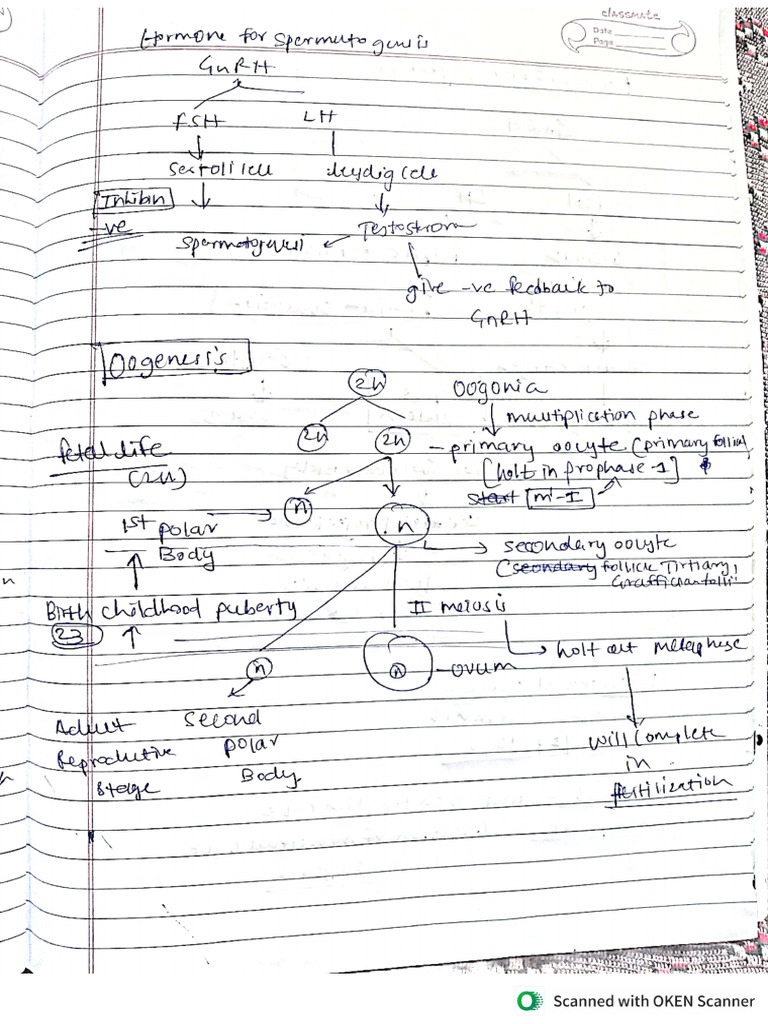 classmate
Date
Page
Hormone for Spermatogenesis
GnRH
FSH LH
Sertoli cell leydig cell
Inhibin
-ve
Testostron
Spermatogenesi
give -ve feedback to
GnRH
Oogenesis
2n Oogonia
multiplication phase
2n 2n - primary oocyte (primary follicl)
fetal life
(2n) [holt in prophase-1]
start m-I
n
1st polar n
Body
secondary oocyte
(secondary follicle Tirtiary,
Graffian folli
Birth childhood puberty II meiosis
23
holt at metaphase
n n - ovum
Adult second
Reproductive polar
stage Body
will complete
in
fertilization
Scanned with OKEN Scanner